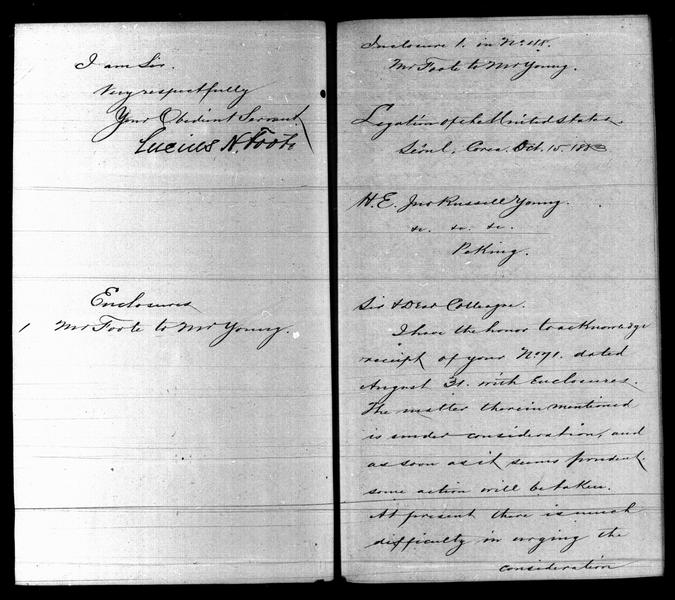 I am Sir.
Very respectfully
Your Obedient Servant
Lucius H. Foote
Enclosures
1 Mr Foote to Mr Young.
Inclosure 1. in No 118.
Mr Foote to Mr Young.
Legation of the United States.
Séoul, Corea. Oct. 15. 1883
H.E. Jno Russell Young.
&c. &c. &c.
Peking.
Sir & Dear Colleague.
I have the honor to acknowledge
receipt of your No 91. dated
August 31. with Enclosures.
The matter therein mentioned
is under consideration, and
as soon as it seems prudent
some action will be taken.
At present there is much
difficulty in urging the
consideration